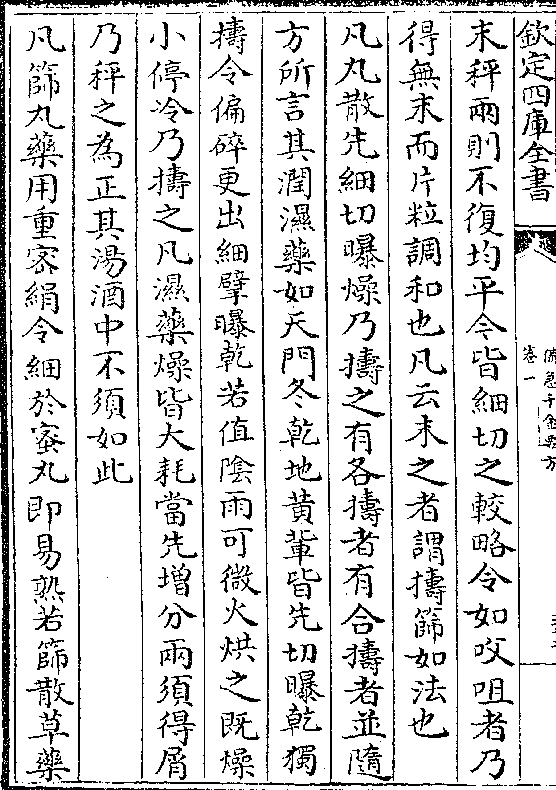 欽定四庫全書
卷一
末秤兩則不復均平今皆細切之較略令如㕮咀者乃
得無末而片粒調和也凡云末之者謂擣篩如法也
凡丸散先細切曝燥乃擣之有各擣者有合擣者並隨
方所言其潤濕藥如天門冬乾地黄輩皆先切曝乾獨
擣令偏碎更出細擘曝乾若值隂雨可微火烘之既燥
小停冷乃擣之凡濕藥燥皆大耗當先增分兩須得屑
乃秤之為正其湯酒中不須如此
凡篩丸藥用重宻絹令細於蜜丸即易熟若篩散草藥